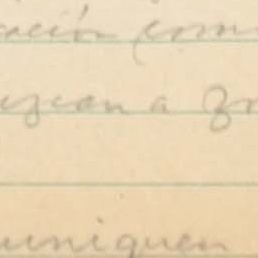 ación com
ezcan a
uniquen